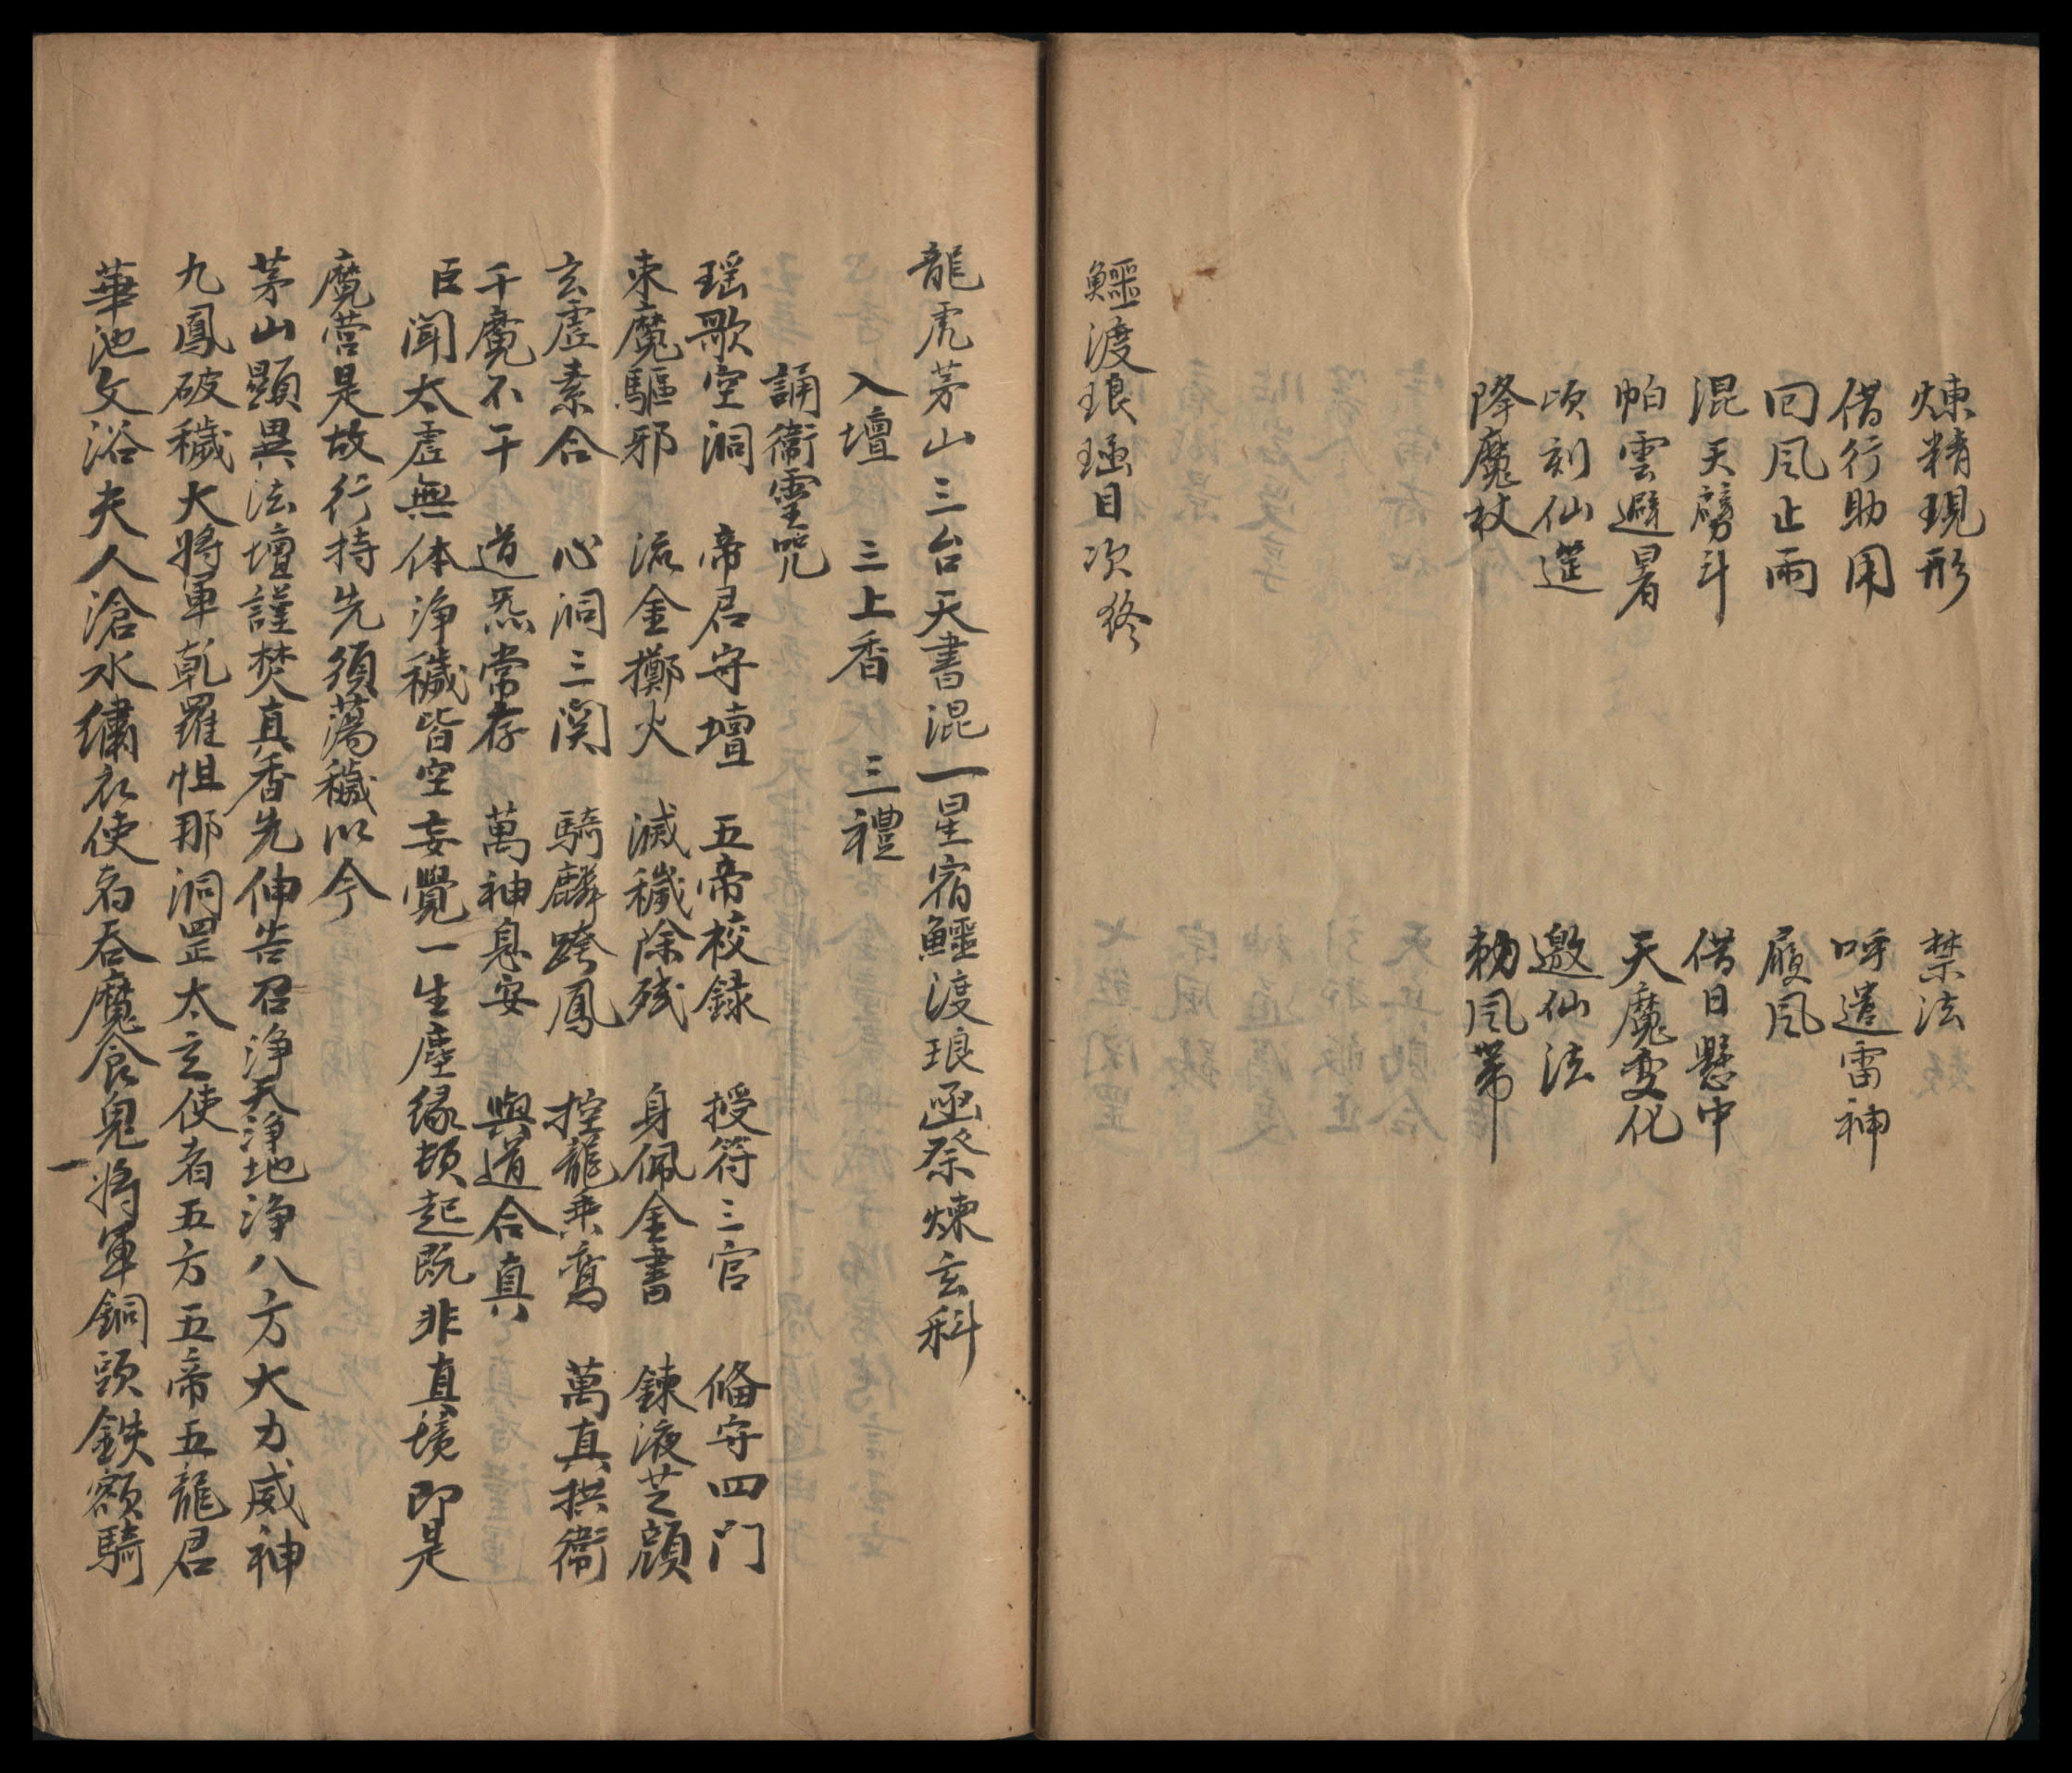 煉精現形　禁法
借行助用　呼遣雷神
回風止雨　履風
混天劈斗　借日懸中
帕雲避暑　天魔変化
頃刻仙莚　邀仙法
降魔杖　勅風帚
鱷渡琅凾目次終
龍虎茅山三台天書混一星宿鱷渡琅凾祭煉玄科
入壇　三上香　三禮
誦衞靈咒
瑶歌空洞　帝君守壇　五帝校録　授符三官　俻守四门
束魔驅邪　流金擲火　滅穢除残　身佩金書　鍊液芝顔
玄虛素合　心洞三関　騎麟跨鳳　控龍乘鸞　萬真拱衞
千魔不干　道炁常存　萬神息安　與道合真
臣聞太虛無体浄穢皆空妄覺一生塵緣頓起既非真境即是
魔营是故行持先須蕩穢以今
茅山顯異法壇謹焚真香先伸告召浄天浄地浄八方大力威神
九鳳破穢大將軍乾羅怛那洞罡太玄使者五方五帝五龍君
華池文浴夫人滄水繡衣使者吞魔食鬼將軍銅頭鉄額騎